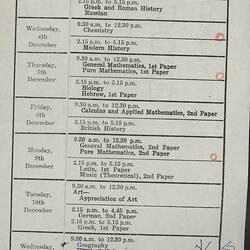 2.15 p.m. to 5.15 p.m.
Greek and Roman History
Russian
Wednesday,
4th
December
9.30 a.m. to 12.30 p.m.
Chemistry
2.15 p.m. to 5.15 p.m.
Modern History
Thursday,
5th
December
9.30 a.m. to 12.30 p.m.
General Mathematics, 1st Paper
Pure Mathematics, 1st Paper
2.15 p.m. to 5.15 p.m.
Biology
Hebrew, 1st Paper
Friday,
6th
December
9.30 a.m. to 12.30 p.m.
Calculus and Applied Mathematics, 2nd Paper
2.15 p.m. to 5.15 p.m.
British History
Monday,
9th
December
9.30 a.m. to 12.30 p.m.
General Mathematics, 2nd Paper
Pure Mathematics, 2nd Paper
2.15 p.m. to 5.15 p.m.
Latin, 1st Paper
Music (Theoretical), 2nd Paper
Tuesday,
10th
December
9.30 a.m. to 12.30 p.m.
Art—
Appreciation of Art
2.15 p.m. to 4.45 p.m.
German, 2nd Paper
2.15 p.m. to 5.15 p.m.
Greek, 1st Paper
Wednesday,
9.30 a.m. to 12.30 p.m.
Geography